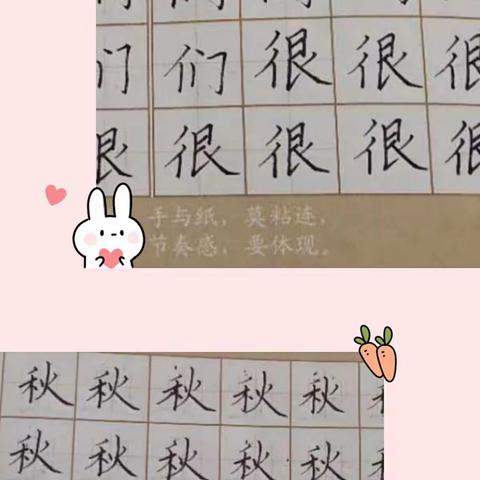 们 们 很 很 很
很 很 很 很 很
手与纸，莫粘连，
节奏感、要体现。
秋 秋 秋 秋 秋
秋 秋 秋 秋 秋